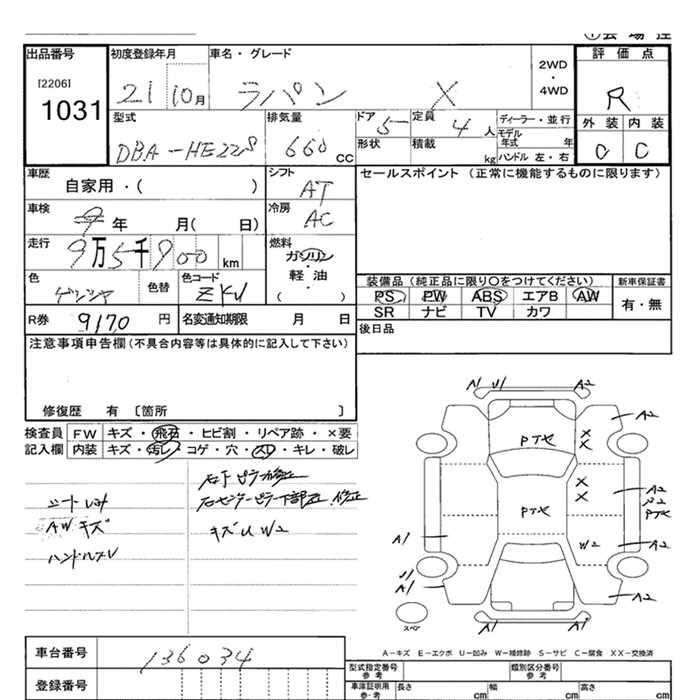 出品番号
[2206]
1031
初度登録年月
21 10月
車名・グレード
ラパン X
2WD
・
4WD
評価点
R
外装 内装
C C
型式
DBA-HE22S
排気量
660 CC
ドア
5
定員
4 人
形状
積載
kg
ディーラー・並行
モデル
年式 年
ハンドル 左・右
車歴
自家用・( )
シフト
AT
車検
年 月( 日)
冷房
AC
走行
9万5千900 km
燃料
ガソリン
・
軽・油
( ・ )
色
色替
色コード
ZKU
R券 9170 円
名変通知期限 月 日
セールスポイント (正常に機能するものに限ります)
装備品(純正品に限り〇をつけてください)
新車保証書
PS PW ABS エアB AW
有・無
SR ナビ TV カワ
後日品
注意事項申告欄(不具合内容等は具体的に記入して下さい)
修復歴 有 〔箇所 〕
検査員 FW キズ・飛石・ヒビ割・リペア跡・×要
記入欄 内装 キズ・汚レ・コゲ・穴・スレ・キレ・破レ
AWキズ
ハンドルスレ
キズU W2
A1 U1 A2
A2
Pて×
×
×
×
×
Pて×
A2
Pて×
A1
W2
A2
U1
A1
A2
スペア
A1 A1
A-キズ E-エクボ U-凹み W-補修跡 S-サビ C-腐食 XX-交換済
車台番号
136034
登録番号
型式指定番号
参考
類別区分番号
参考
車庫証明用
参考
長さ cm
幅 cm
高さ cm